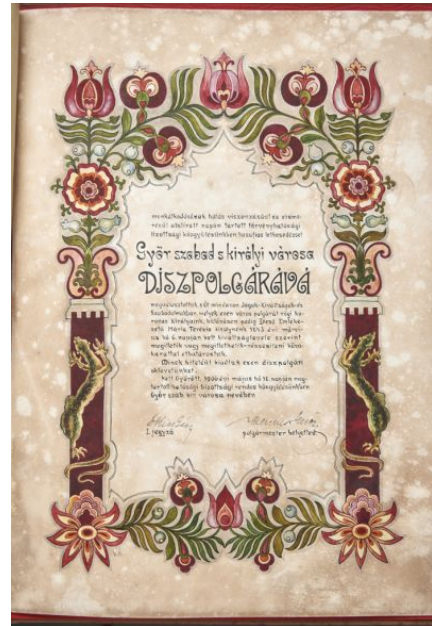 munkálkodásának hálás viszonzásául és elismeréséül alulírott napon tartott törvényhatósági
bizottsági közgyűlésünkben
Győr szabad s királyi városa
DÍSZPOLGÁRÁVÁ
megválasztottuk, sőt mindazon Jogok-Kiváltságok-és
Szabadalmakban, melyek ezen város polgárát régi ko-
ronás királyaink, különösen pedig Dicső Emléke-
zetű Mária Terézia királynénk 1743 évi márci-
us hó 6. napján kelt kiváltságlevele szerint
megilletik vagy megillethetik-részesíteni köz
akarattal elhatároztuk.
Minek hiteléül kiadtuk ezen díszpolgári
oklevelünket.
Kelt Győrött, 1906 évi május hó 12. napján meg-
tartott hatósági bizottsági rendes közgyűlésünkben
Győr szab. kir. városa nevében
I. jegyző
polgármester helyettes